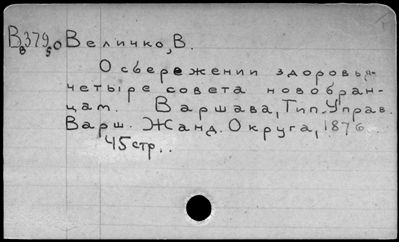 В8379,50 Величко, В.
О сбережении здоровья-
четыре совета новобран-
цам. Варшава, Тип. Управ.
Варш. Жанд. Округа, 1876
45 стр..